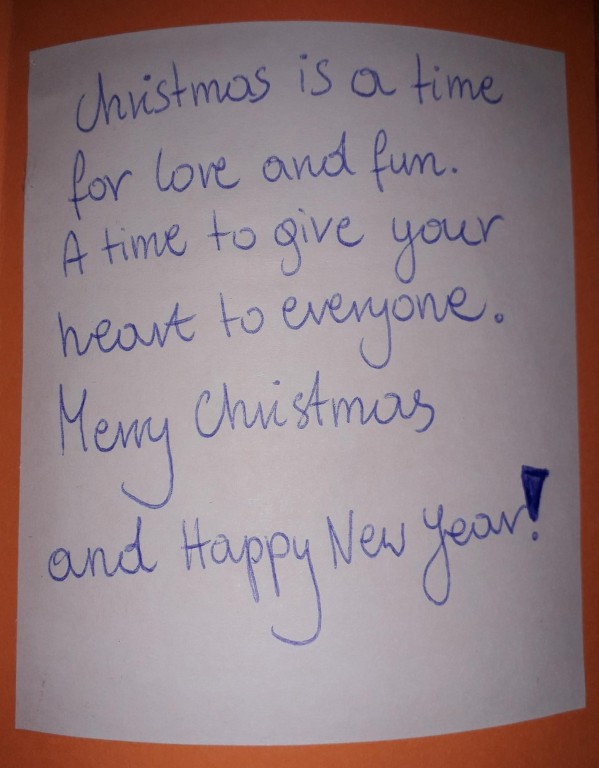 Christmas is a time
for love and fun.
A time to give your
heart to everyone.
Merry Christmas
and Happy New Year!